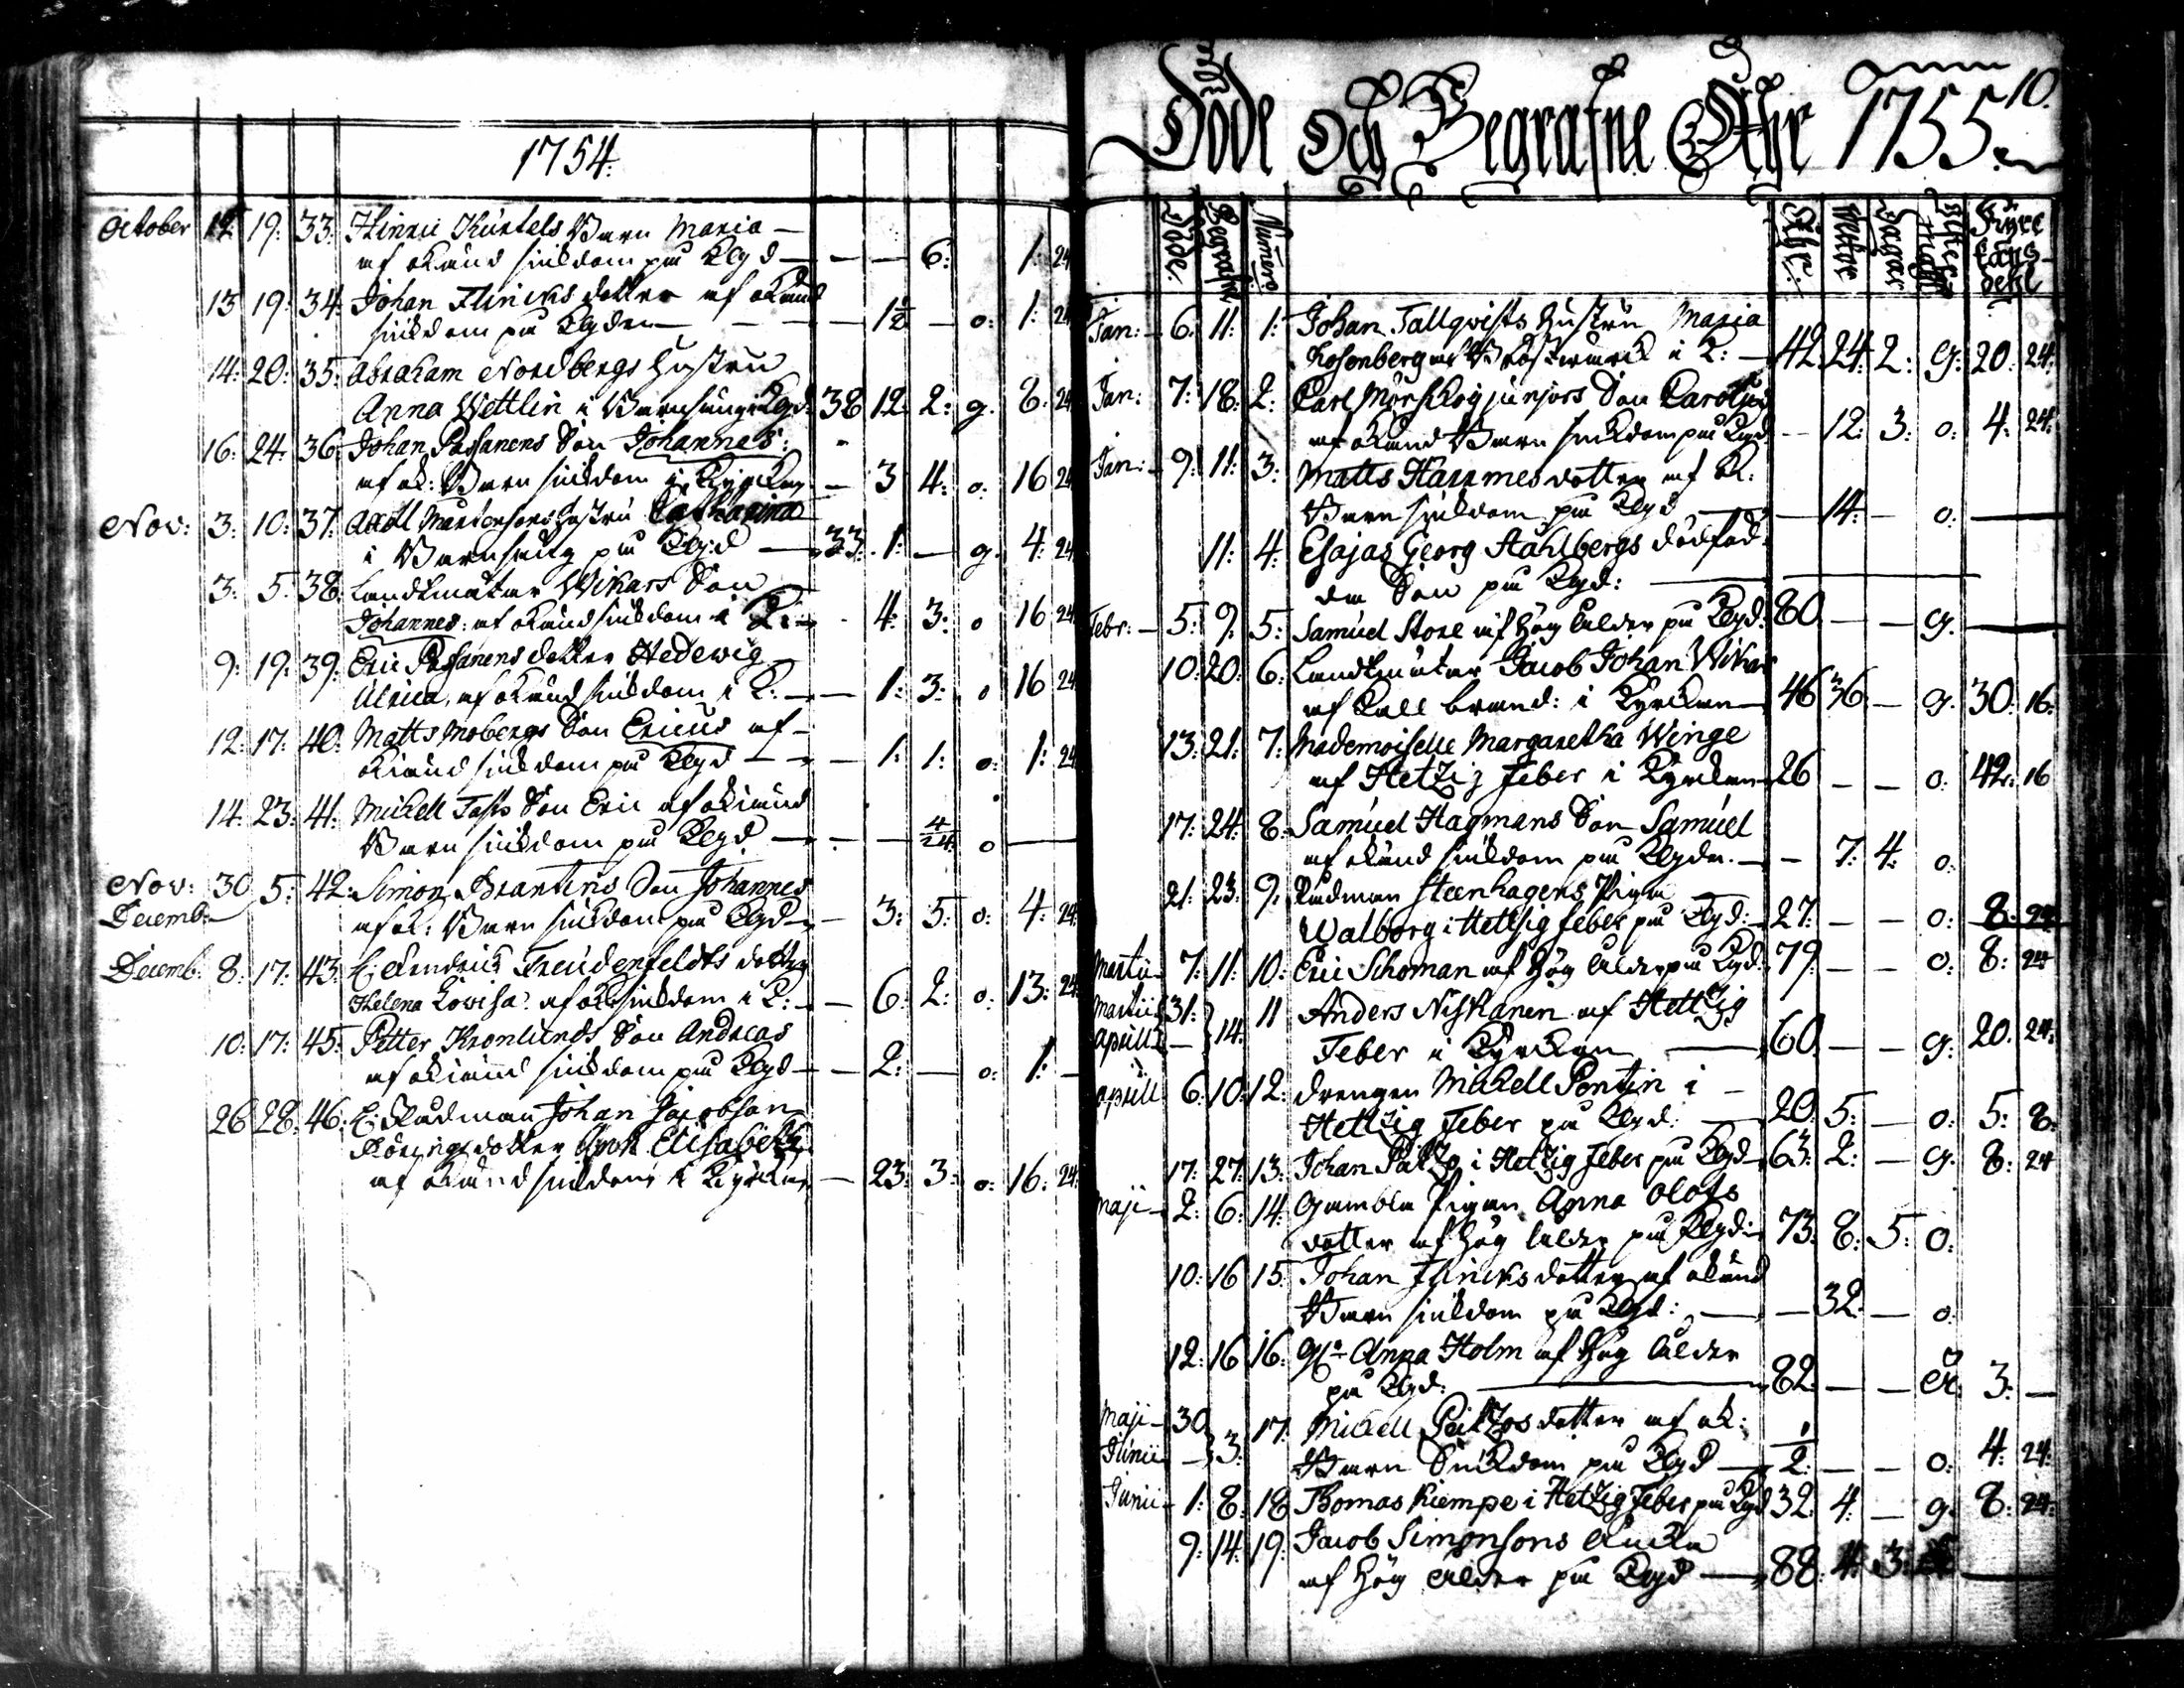 1754.
October 12. 19. 33. Hinric Kurtels Barn Maria —
af okänd siukdom på Kgd — — — 6. 1. 24
13 19. 34. Johan Flincks dotter af okänd
siukdom på Kgden — — — 1½ — o. 1. 24
14. 20. 35. Abraham Nordbergs hustru
Anna Wettlin i Barnsäng Kgd. 38 12. 2. g. 8. 24
16. 24. 36. Johan Passanens Son Johannes.
af ok: Barn siukdom i Kyrckan — 3 4. o. 16 24
Nov: 3. 10. 37. Axell Mårtensons hustru Catharina
i Barnsäng på Kgd — 33. 1. — g. 4. 24
3. 5. 38. Landtmätar Wikars Son
Johannes. af okänd siukdom i K: — 4. 3. o 16 24
9. 19. 39. Eric Passanens dotter Hedewig
Ulrica, af okänd siukdom i K. — — 1. 3. o 16 24
12. 17. 40. Matts Mobergs Son Ericus af —
okiänd siukdom på Kgd — — 1. 1. o. 1. 24
14. 23. 41. Michell Tasts Son Eric af okiänd
Barn siukdom på Kgd — — — 4/24. o —
Nov: 30 5. 42. Simon Brantins Son Johannes
Decemb:
af ok: Barn siukdom på Kgd — — 3. 5. o. 4. 24.
Decemb. 8. 17. 43. C. Fendrick Freudenfeldts dotter
Helena Lovisa. af ok siukdom i K: — — 6. 2. o. 13. 24
10. 17. 45. Petter Kronlunds Son Andreas
af okiänd siukdom på Kgd — — 2. — o. 1. —
26 28. 46. C. Rådman Johan Jacobson
dotter Elisabeth
af okänd siukdom i Kyrckan — 23. 3. o. 16. 24.
Döde och Begrafne Åhr 1755. 10.
Döde. Begrafne Numero Åhr. Wekor Dagar Ächta Ogifft Kyrckans dehl
Jan: — 6. 11. 1. Johan Tallqvists hustru Maria
Rosenberg af Bröstwärck i K: — 42 24. 2. g. 20. 24.
Jan: 7. 18. 2. Carl Mörskog junjors Son Carolus
af okänd Barn siukdom på Kgd. — 12. 3. o. 4. 24.
Jan: — 9. 11. 3. Matts Harmes dotter af ok.
Barn siukdom på Kgd — — 14. — o. —
11. 4. Esajas Georg Stahlbergs dödföd
da Son på Kgd: —
Febr: — 5. 9. 5. Samuel Stoll af hög ålder på Kgd. 80 — — g. —
10. 20. 6. Landtmätar Jacob Johan Wikar
af Kall brand: i Kyrckan — 46 36 — g. 30. 16.
13. 21. 7. Mademoiselle Margaretha Winge
af Hetzig Feber i Kyrckan 26 — — o. 42. 16
17. 24. 8. Samuel Hagmans Son Samuel
af okänd siukdom på Kgden. — — 7. 4. o.
21. 23. 9. Rådman Steenhagens Piga
Walborg i Hettsig feber på Kgd: — 27. — — o. 8. 24
Martii — 7. 11. 10. Eric Schoman af hög ålder på Kgd. 79. — — o. 8. 24
Martii 31. 11 Anders Niskanen af Hettzig
Aprill — 14. Feber i Kyrckan — 60. — — g. 20. 24.
Aprill 6. 10. 12. drengen Michell Pontin i —
Hettzig Feber på Kgd. — 20. 5. — o. 5. 8.
17. 27. 13. Johan i Hetzig Feber på Kgd 63. 2. — g. 8. 24
Maji — 2. 6. 14. Gambla Pigan Anna Olofs
dotter af hög ålder på Kgd: 73. 8. 5. o.
10. 16 15. Johan Flincks dotter af okänd
Barn siukdom på Kgd: — — 32. — o.
12. 16 16. Anna Holm af hög ålder
på Kgd: — 82. — — 3. —
Maji — 30. 17. Michell dotter af ok:
Junii — 3. Barn Siukdom på Kgd — ½. — — o. 4. 24.
Junii — 1. 8. 18 Thomas Kiempe i Hetzig Feber på Kgd 32. 4. — g. 8. 24.
9. 14. 19. Jacob Simonsons Encka
af hög ålder på Kgd — 88. 4. 3. —